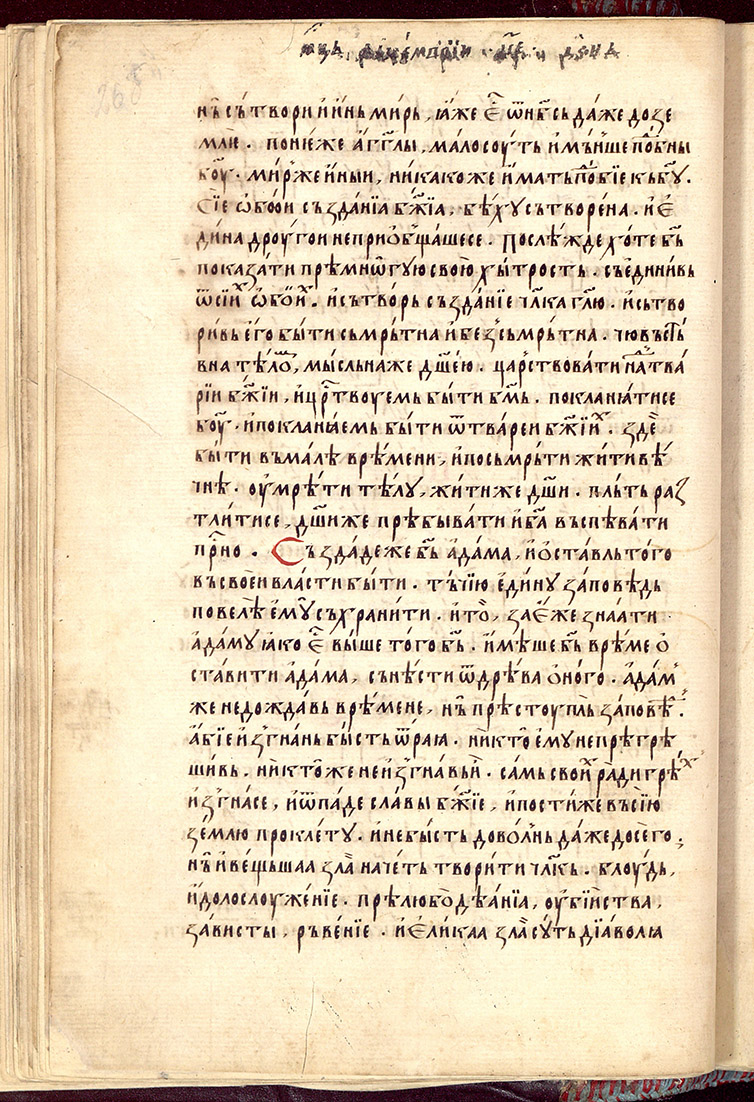 268
мⷭ҇ца декемврїи к҃е дьнь
нь сътвори и инь мирь, ꙗже ѥⷭ҇ ѿ нбⷭ҇ь даже до зе
млѥ. понѥже аг҃глы, мало соуть имѣише пⷪ҇бны
боу҃. мир же иныи, никако же имать пⷪ҇бїе кь б҃у.
Сїе ѡбои създанїа б҃жїа, бѣху сътворена. и є
дина дроугои не приѻбщаше се. послѣжде хоте б҃ь
показати прѣмнѡгую свою хытрость. съединивь
ѿ сїиⷯ ѡбоиⷯ. и сътворь създанїе чл҃ка гл҃ю. и сьтво
ривь его быти сьмрьтна и безсьмрьтна. чювьстⷡ҇ь
вна тѣлоⷨ, мысльна же дш҃ею. царⷭ҇твовати наⷣ тва
рїи б҃жїи, и црⷭ҇твоуемь быти бм҃ь. покланꙗти се
боу҃, и покланꙗемь быти ѿ твареи б҃жїиⷯ. здⷭ҇е
быти въ малѣ врѣмени, и по сьмрьти жити вѣ
чнѣ. оумрѣти тѣлу, жити же дш҃и. пльть раз
тлити се, дш҃и же прѣбывати и б҃а въспѣвати
прⷭ҇но. Създаде же б҃ь адама, и оставль того
въ своеи власти быти. тъчїю едину заповѣдь
повелѣ ему съхранити. и то, за еже знаати
адаму ꙗко ѥⷭ҇ выше того б҃ь. имѣше б҃ь врѣме о
ставити адама, сънѣсти ѿ дрѣва оного. адамⸯ
же не дождавь врѣмене, нь прѣстоупль заповѣⷣ.
абїе изгнань бысть ѿ раꙗ. никто ему не прѣгрѣ
шивь. никто же не изгнавьи. самь своиⷯ ради грѣⷯ
изгна се, и ѿпаде славы б҃жїе, и постиже въ сїю
землю проклету. и не бысть доволⸯнь даже до сего,
нь и вещьшаа зла начеть творити чл҃кь. блоудь,
идолослоуженїе. прѣлюбодѣанїа, оубїиства,
зависты, рьвенїе. и еликаа зла суть дїаволꙗ